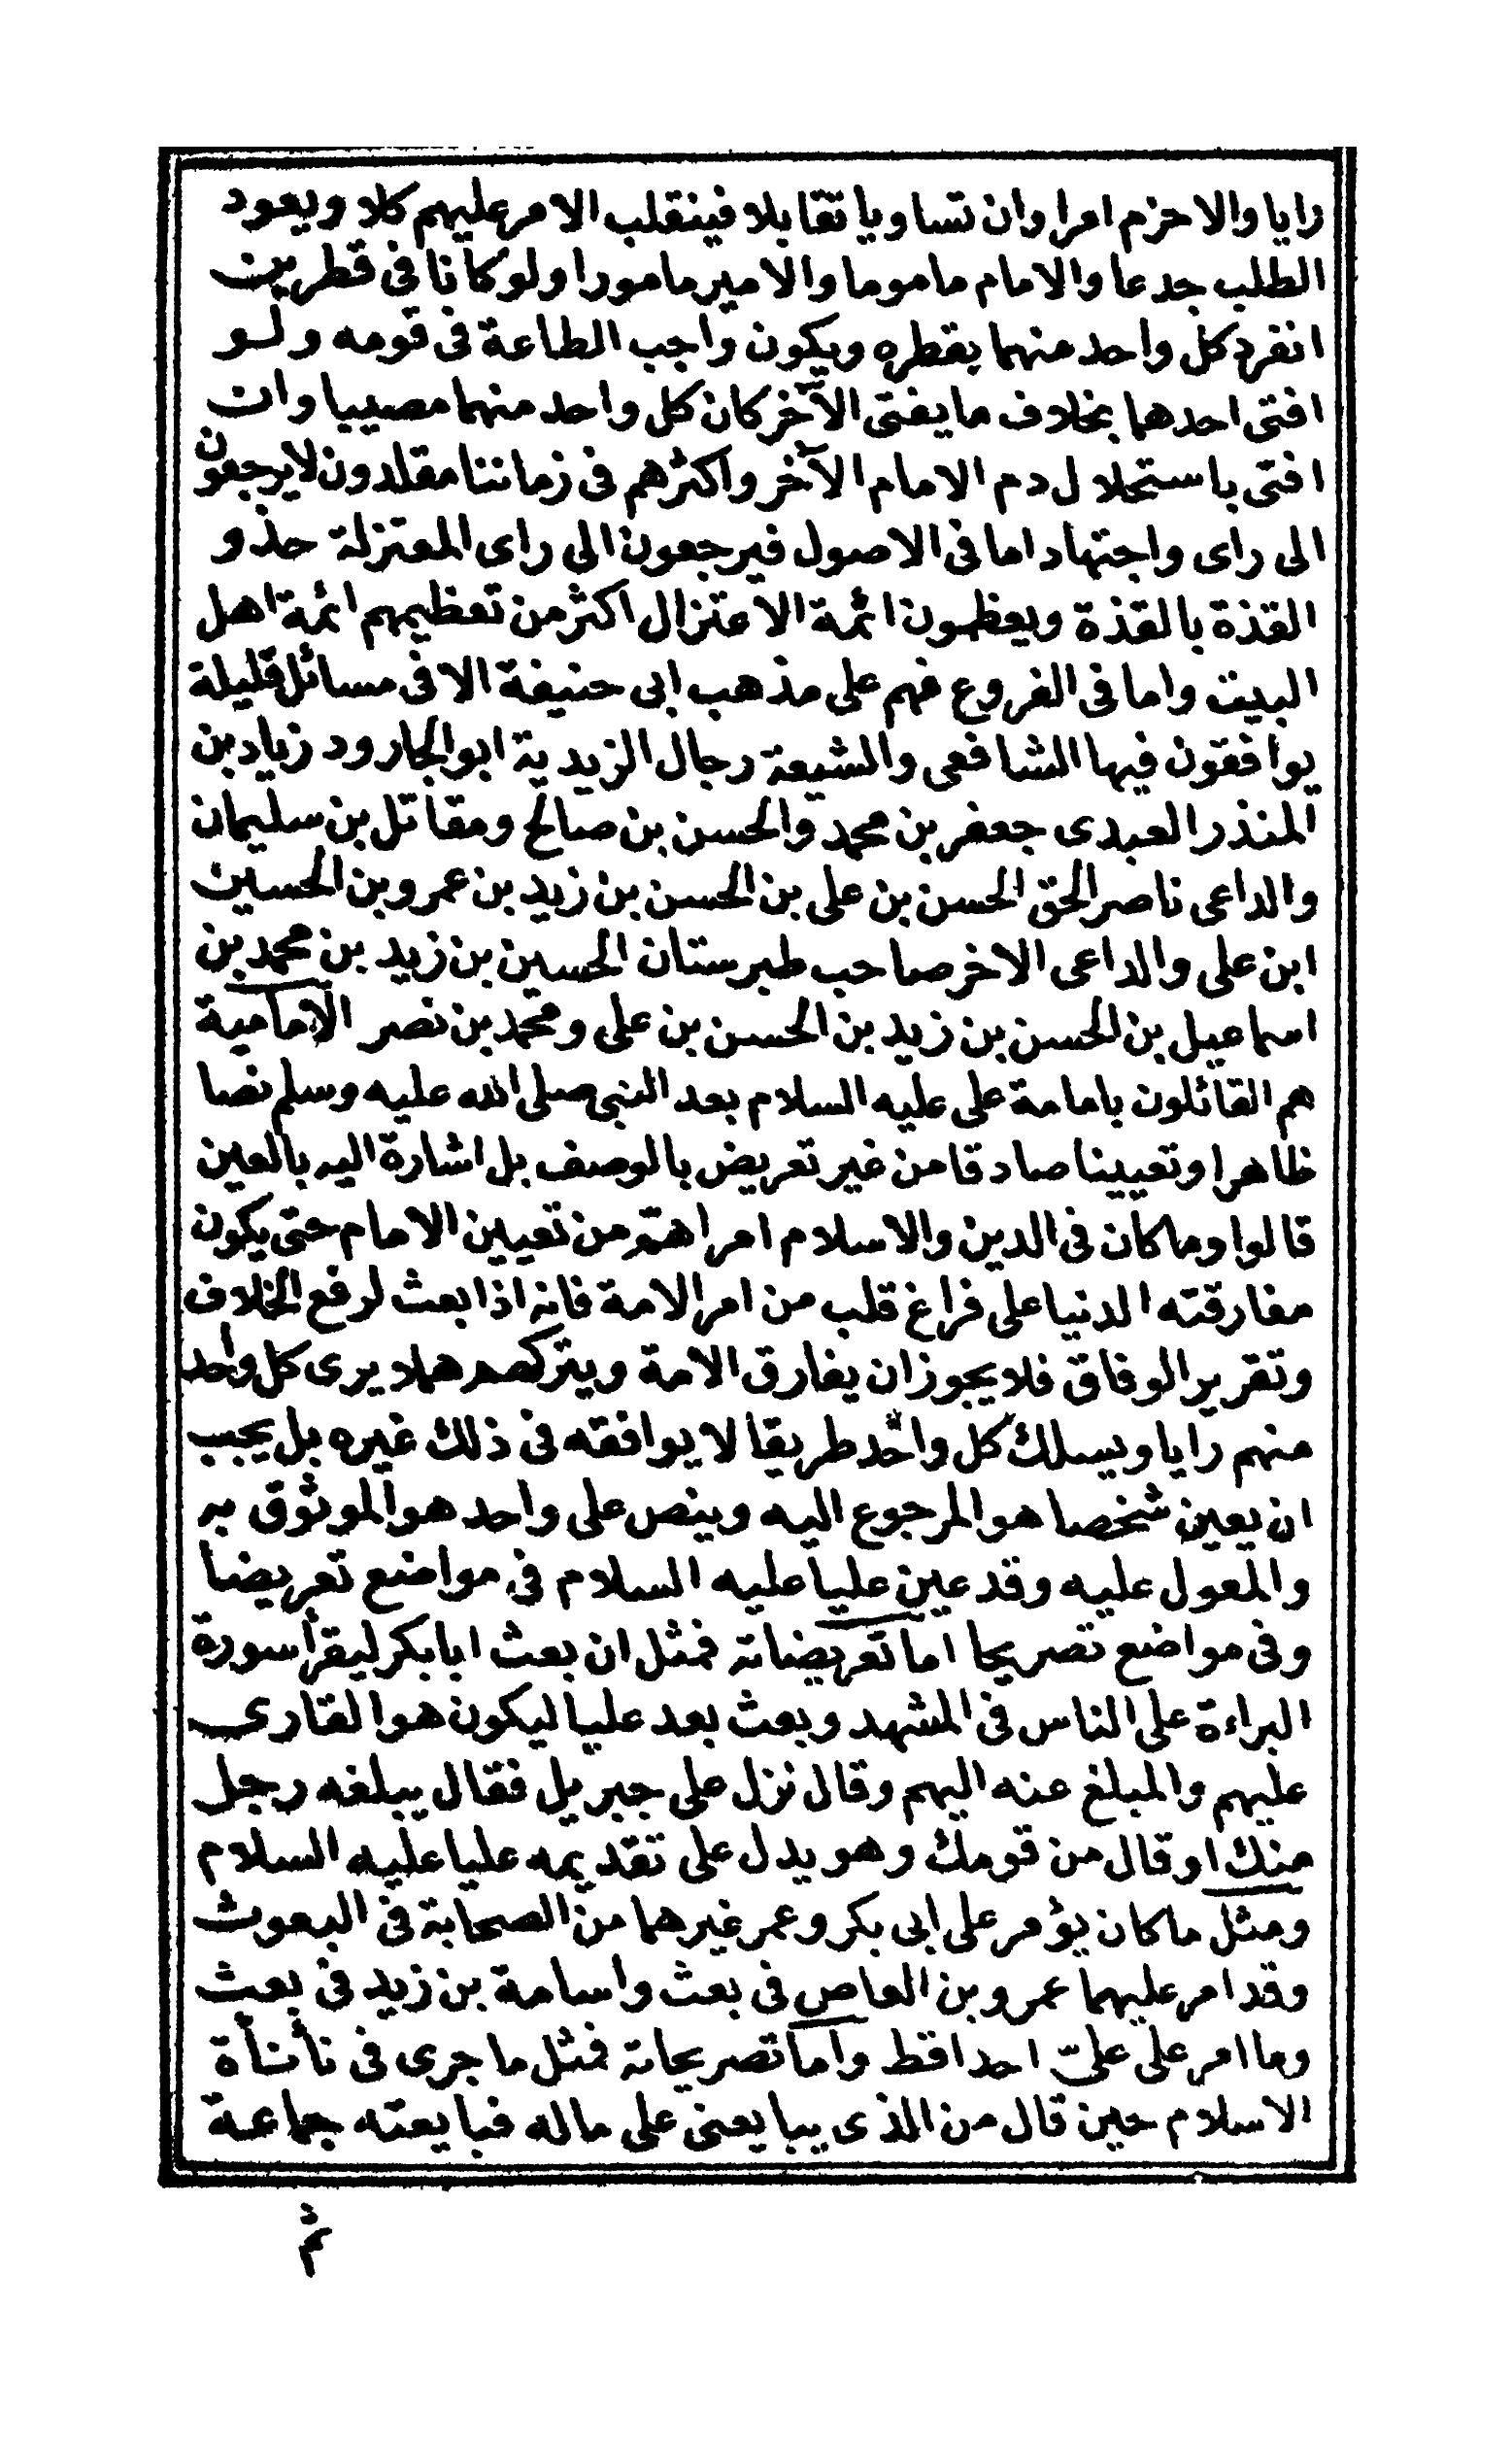 رايا والاحزم امرا وان تساويا تقابلا فينقلب الامر عليهم كلا ويعود
الطلب جدعا والامام ماموما والامير مامورا ولو كانا فى قطرين
انفرد كل واحد منهما بقطره ويكون واجب الطاعة فى قومه ولو
افتى احدهما بخلاف ما يفتى الآخر كان كل واحد منهما مصيبا وان
افتى باستحلال دم الامام الآخر واكثرهم فى زماننا مقلدون لا يرجعون
الى راى واجتهاد اما فى الاصول فيرجعون الى راى المعتزلة حذو
القذة بالقذة ويعظمون ائمة الاعتزال اكثر من تعظيمهم ائمة اهل
البيت واما فى الفروع فهم على مذهب ابى حنيفة الا فى مسائل قليلة
يوافقون فيها الشافعى والشيعة رجال الزيدية ابو الجارود زياد بن
المنذر العبدى جعفر بن محمد والحسن بن صالح ومقاتل بن سليمان
والداعى ناصر الحق الحسن بن على بن الحسن بن زيد بن عمرو بن الحسين
ابن على والداعى الاخر صاحب طبرستان الحسين بن زيد بن محمد بن
اسماعيل بن الحسن بن زيد بن الحسن بن على ومحمد بن نصر الامامية
هم القائلون بامامة على عليه السلام بعد النبى صلى الله عليه وسلم نصا
ظاهرا وتعيينا صادقا من غير تعريض بالوصف بل اشارة اليه بالعين
قالوا وما كان فى الدين والاسلام امر اهم من تعيين الامام حتى يكون
مفارقته الدنيا على فراغ قلب من امر الامة فانه اذا بعث لرفع الخلاف
وتقرير الوفاق فلا يجوز ان يفارق الامة ويتركهم هملا يرى كل واحد
منهم رايا ويسلك كل واحد طريقا لا يوافقه فى ذلك غيره بل يجب
ان يعين شخصا هو المرجوع اليه وينص على واحد هو الموثوق به
والمعول عليه وقد عين عليا عليه السلام فى مواضع تعريضا
وفى مواضع تصريحا اما تعريضاته فمثل ان بعث ابا بكر ليقرأ سورة
البراءة على الناس فى المشهد وبعث بعد عليا ليكون هو القارى
عليهم والمبلغ عنه اليهم وقال نزل على جبريل فقال يبلغه رجل
منك او قال من قومك وهو يدل على تقديمه عليا عليه السلام
ومثل ما كان يؤمر على ابى بكر وعمر غيرهما من الصحابة فى البعوث
وقد امر عليهما عمرو بن العاص فى بعث واسامة بن زيد فى بعث
وما امر على علىّ احدا قط واما تصريحاته فمثل ما جرى فى نأنأة
الاسلام حين قال من الذى يبايعنى على ماله فبايعته جماعة
ثم